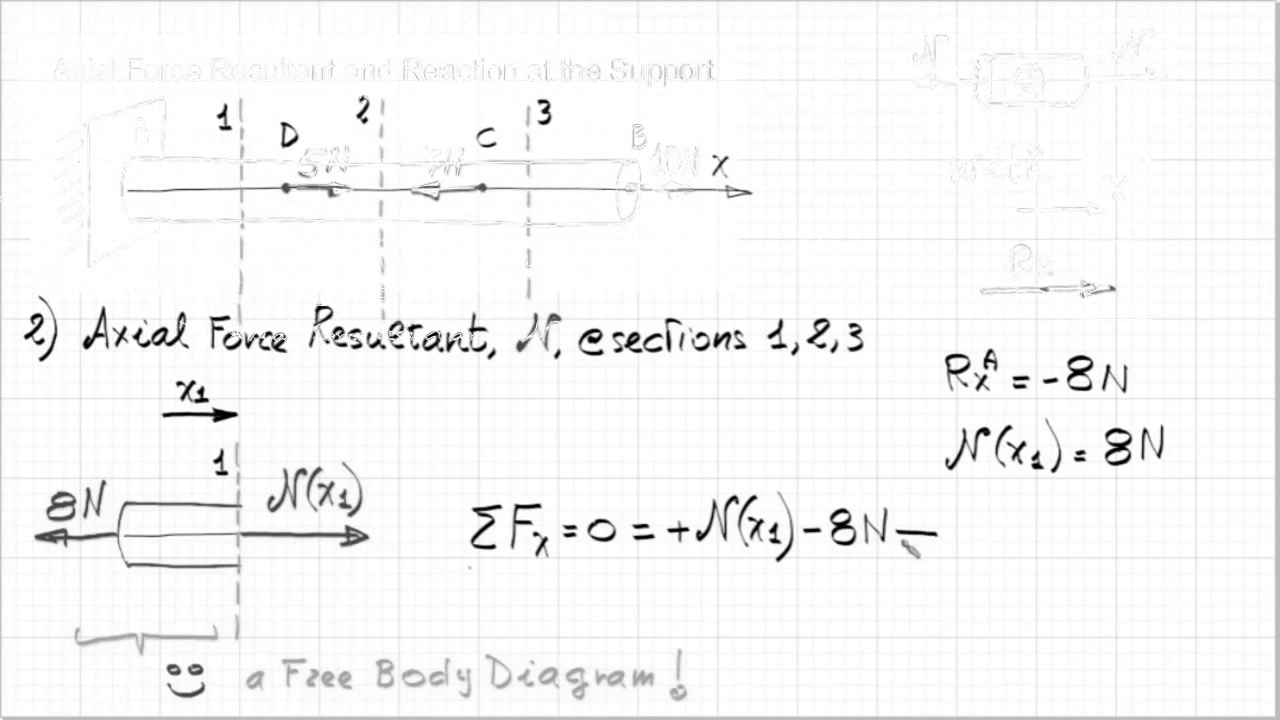 Axial Force Resultant and Reaction at the Support
N N
1 2 3
A D C B
5N 7N 10N x
x
Rx
2) Axial Force Resultant, N, @ sections 1, 2, 3
x1
RxA = -8N
N(x1) = 8N
1
8N N(x1)
ΣFx = 0 = +N(x1) - 8N —
a Free Body Diagram!